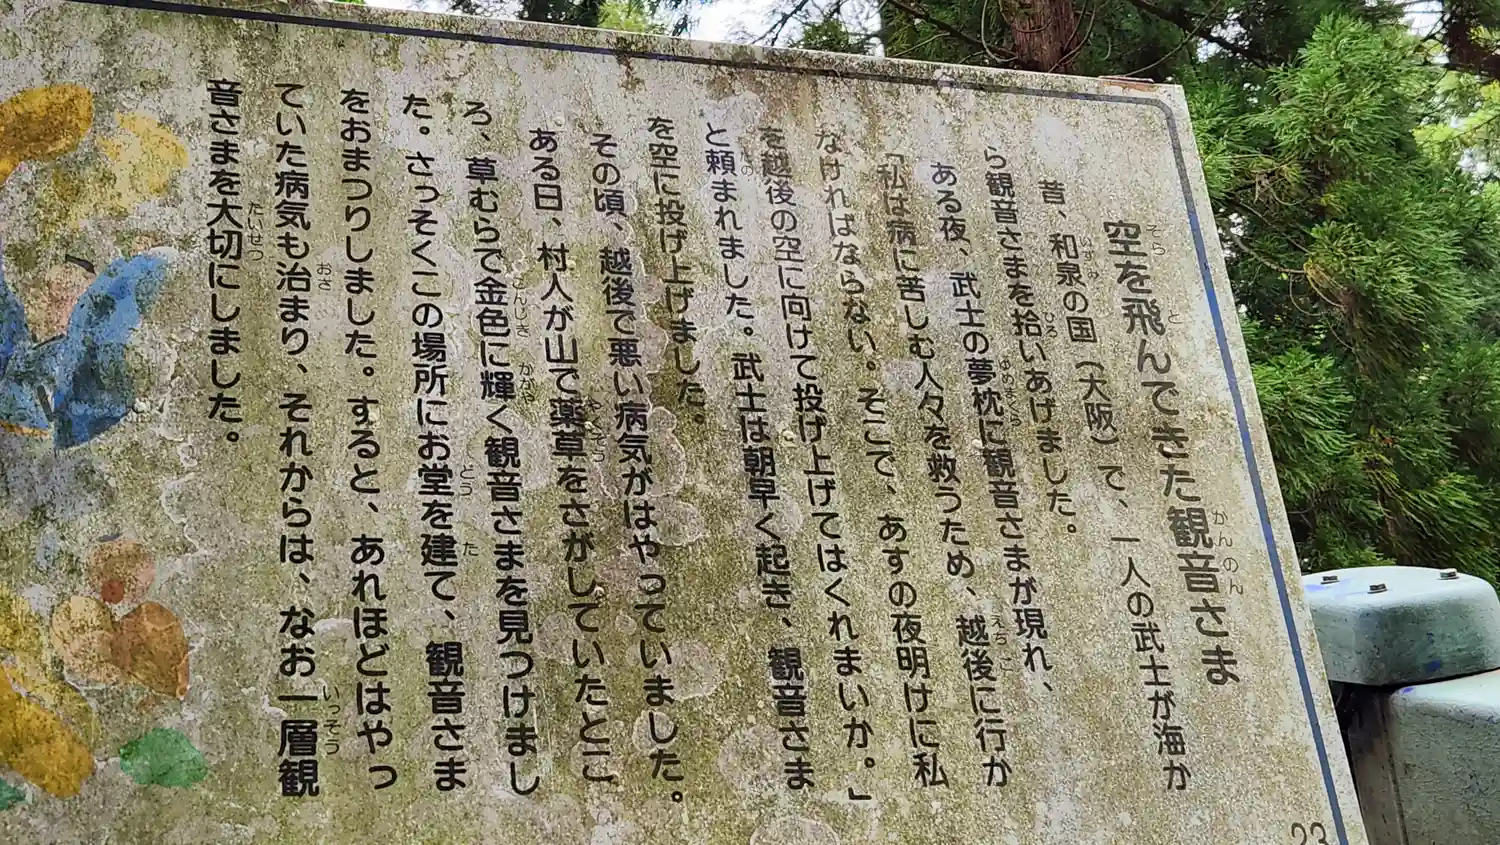 空を飛んできた観音さま
昔、和泉の国(大阪)で、一人の武士が海か
ら観音さまを拾いあげました。
ある夜、武士の夢枕に観音さまが現れ、
「私は病に苦しむ人々を救うため、越後に行か
なければならない。そこで、あすの夜明けに私
を越後の空に向けて投げ上げてはくれまいか。」
と頼まれました。武士は朝早く起き、観音さま
を空に投げ上げました。
その頃、越後で悪い病気がはやっていました。
ある日、村人が山で薬草をさがしていたとこ
ろ、草むらで金色に輝く観音さまを見つけまし
た。さっそくこの場所にお堂を建て、観音さま
をおまつりしました。すると、あれほどはやっ
ていた病気も治まり、それからは、なお一層観
音さまを大切にしました。
23